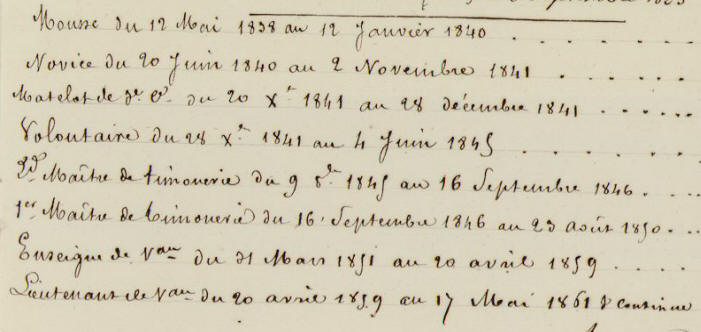 Mousse du 12 Mai 1838 au 12 Janvier 1840 . . . . . .
Novice du 20 Juin 1840 au 2 Novembre 1841 . . . . .
Matelot de 3e Cl. du 20 Xre 1841 au 28 décembre 1841 . . . . . .
Volontaire du 28 Xre 1841 au 4 Juin 1845 . . . . . .
2d Maître de timonerie du 9 8re 1845 au 16 Septembre 1846 . . . .
1er Maître de timonerie du 16 Septembre 1846 au 23 août 1850 . . .
Enseigne de Vau du 31 Mars 1851 au 20 avril 1859 . . . . .
Lieutenant de Vau du 20 avril 1859 au 17 Mai 1861 & continue